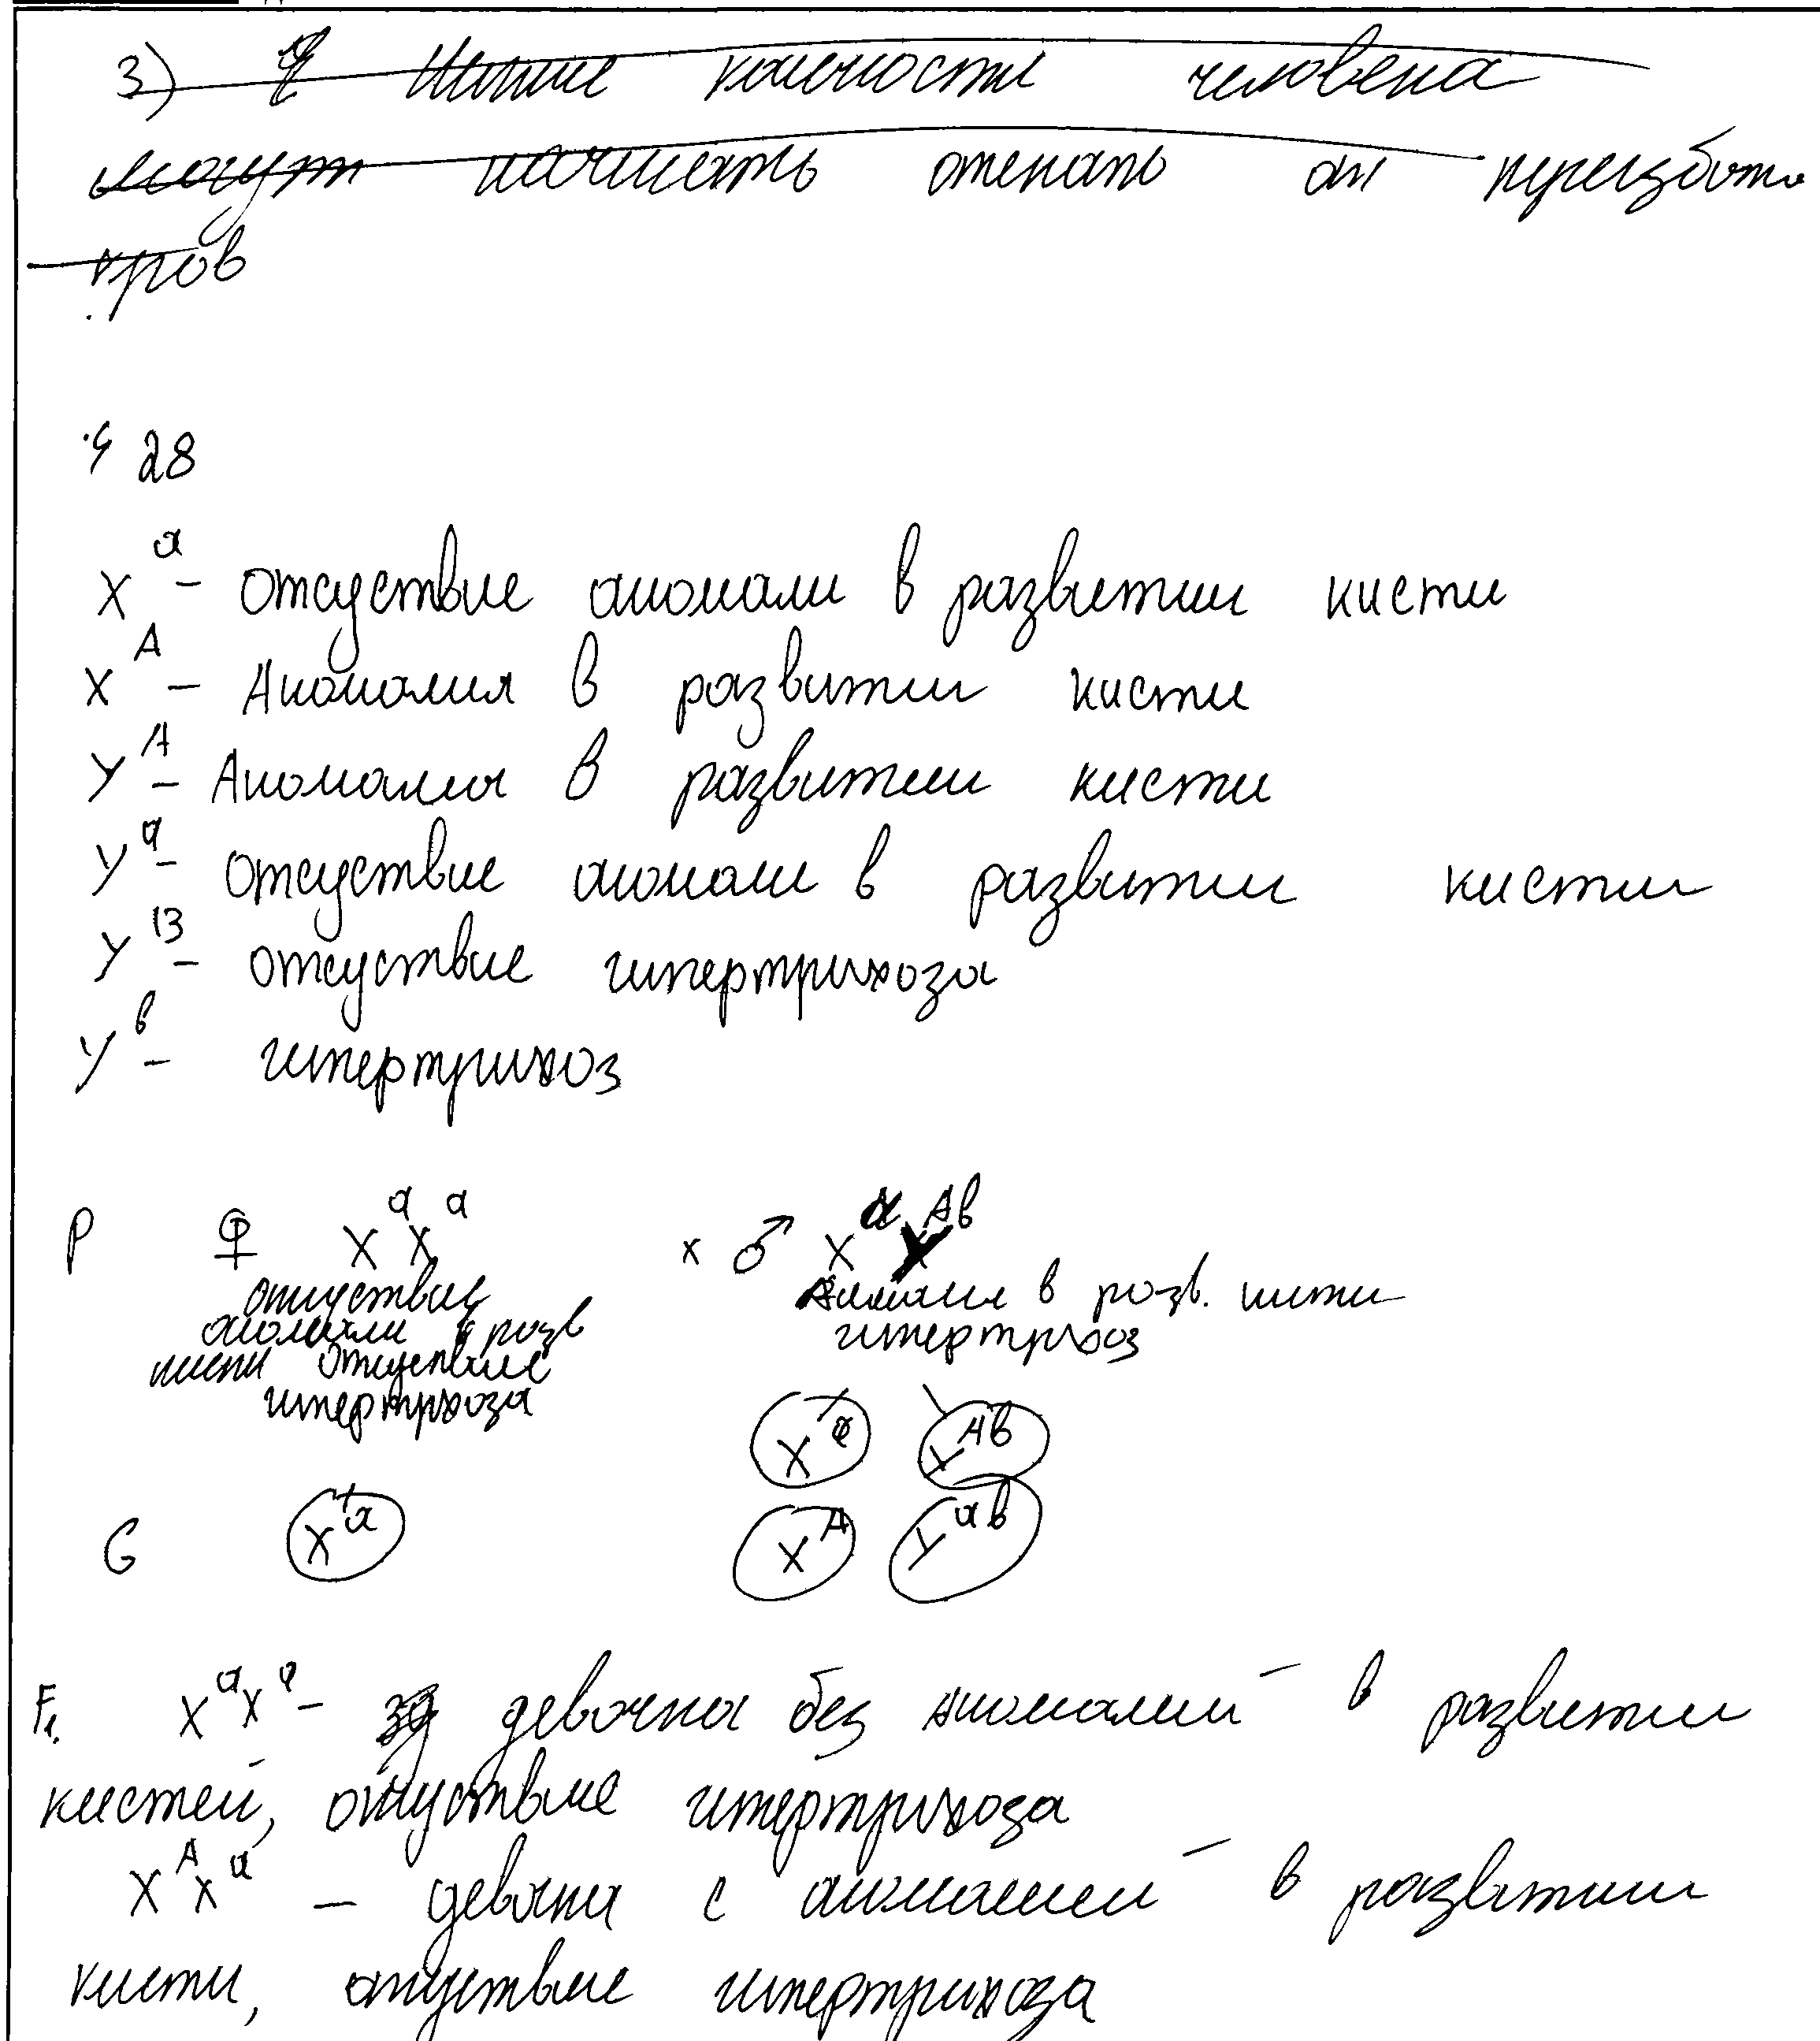 3) Нижние конечности человека
могут начинать отекать от
кров
28
X^a - отсуствие аномали в развитии кисти
X^A - Аномалия в развитии кисти
Y^A - Аномалия в развитии кисти
Y^a - отсуствие аномали в развитии кисти
Y^B - отсуствие гипертрихоза
Y^b - гипертрихоз
P ♀ X^a X^a x ♂ X^a Y^Ab
отсуствие
аномали в разв
кисти отсуствие
гипертрихоза
Аномалия в разв. кисти
гипертрихоз
X^a Y^Ab
G X^a X^A Y^ab
F1. X^a X^a - девочка без аномалий в развитии
кистей, отсуствие гипертрихоза
X^A X^a - девочка с аномалией в развитии
кисти, отсуствие гипертрихоза